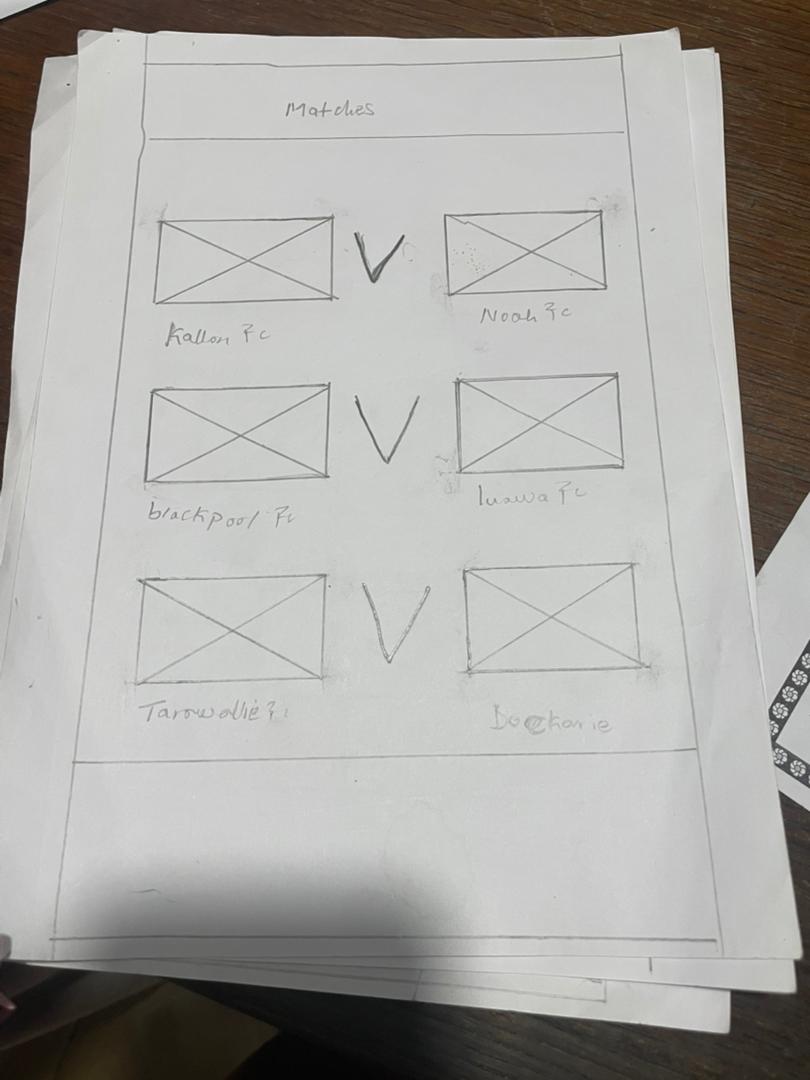 Matches
V
Kallon Fc
Noah Fc
V
blackpool Fc
luawa Fc
V
Tarawallie Fc
Bockarie